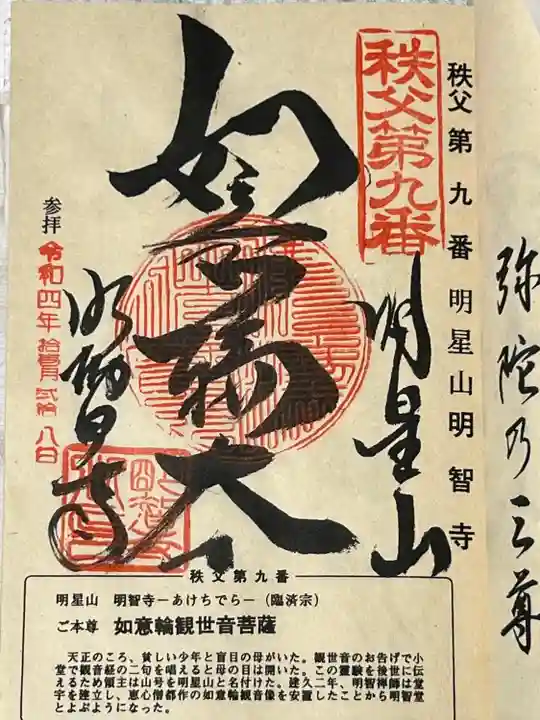 弥陀乃三尊
秩父第九番 明星山明智寺
秩父第九番
明星山
如意輪大士
明智寺
参拝
令和四年 拾壹月 弐拾八日
秩父第九番
明星山 明智寺―あけちでら―(臨済宗)
ご本尊 如意輪観世音菩薩
天正のころ、貧しい少年と盲目の母がいた。観世音のお告げで小
堂で観音経の二句を唱えると母の目は開いた。この霊験を後世に伝
えるため領主は山号を明星山と名付けた。建久二年、明智禅師が堂
宇を建立し、恵心僧都作の如意輪観音像を安置したことから明智寺
とよぶようになった。